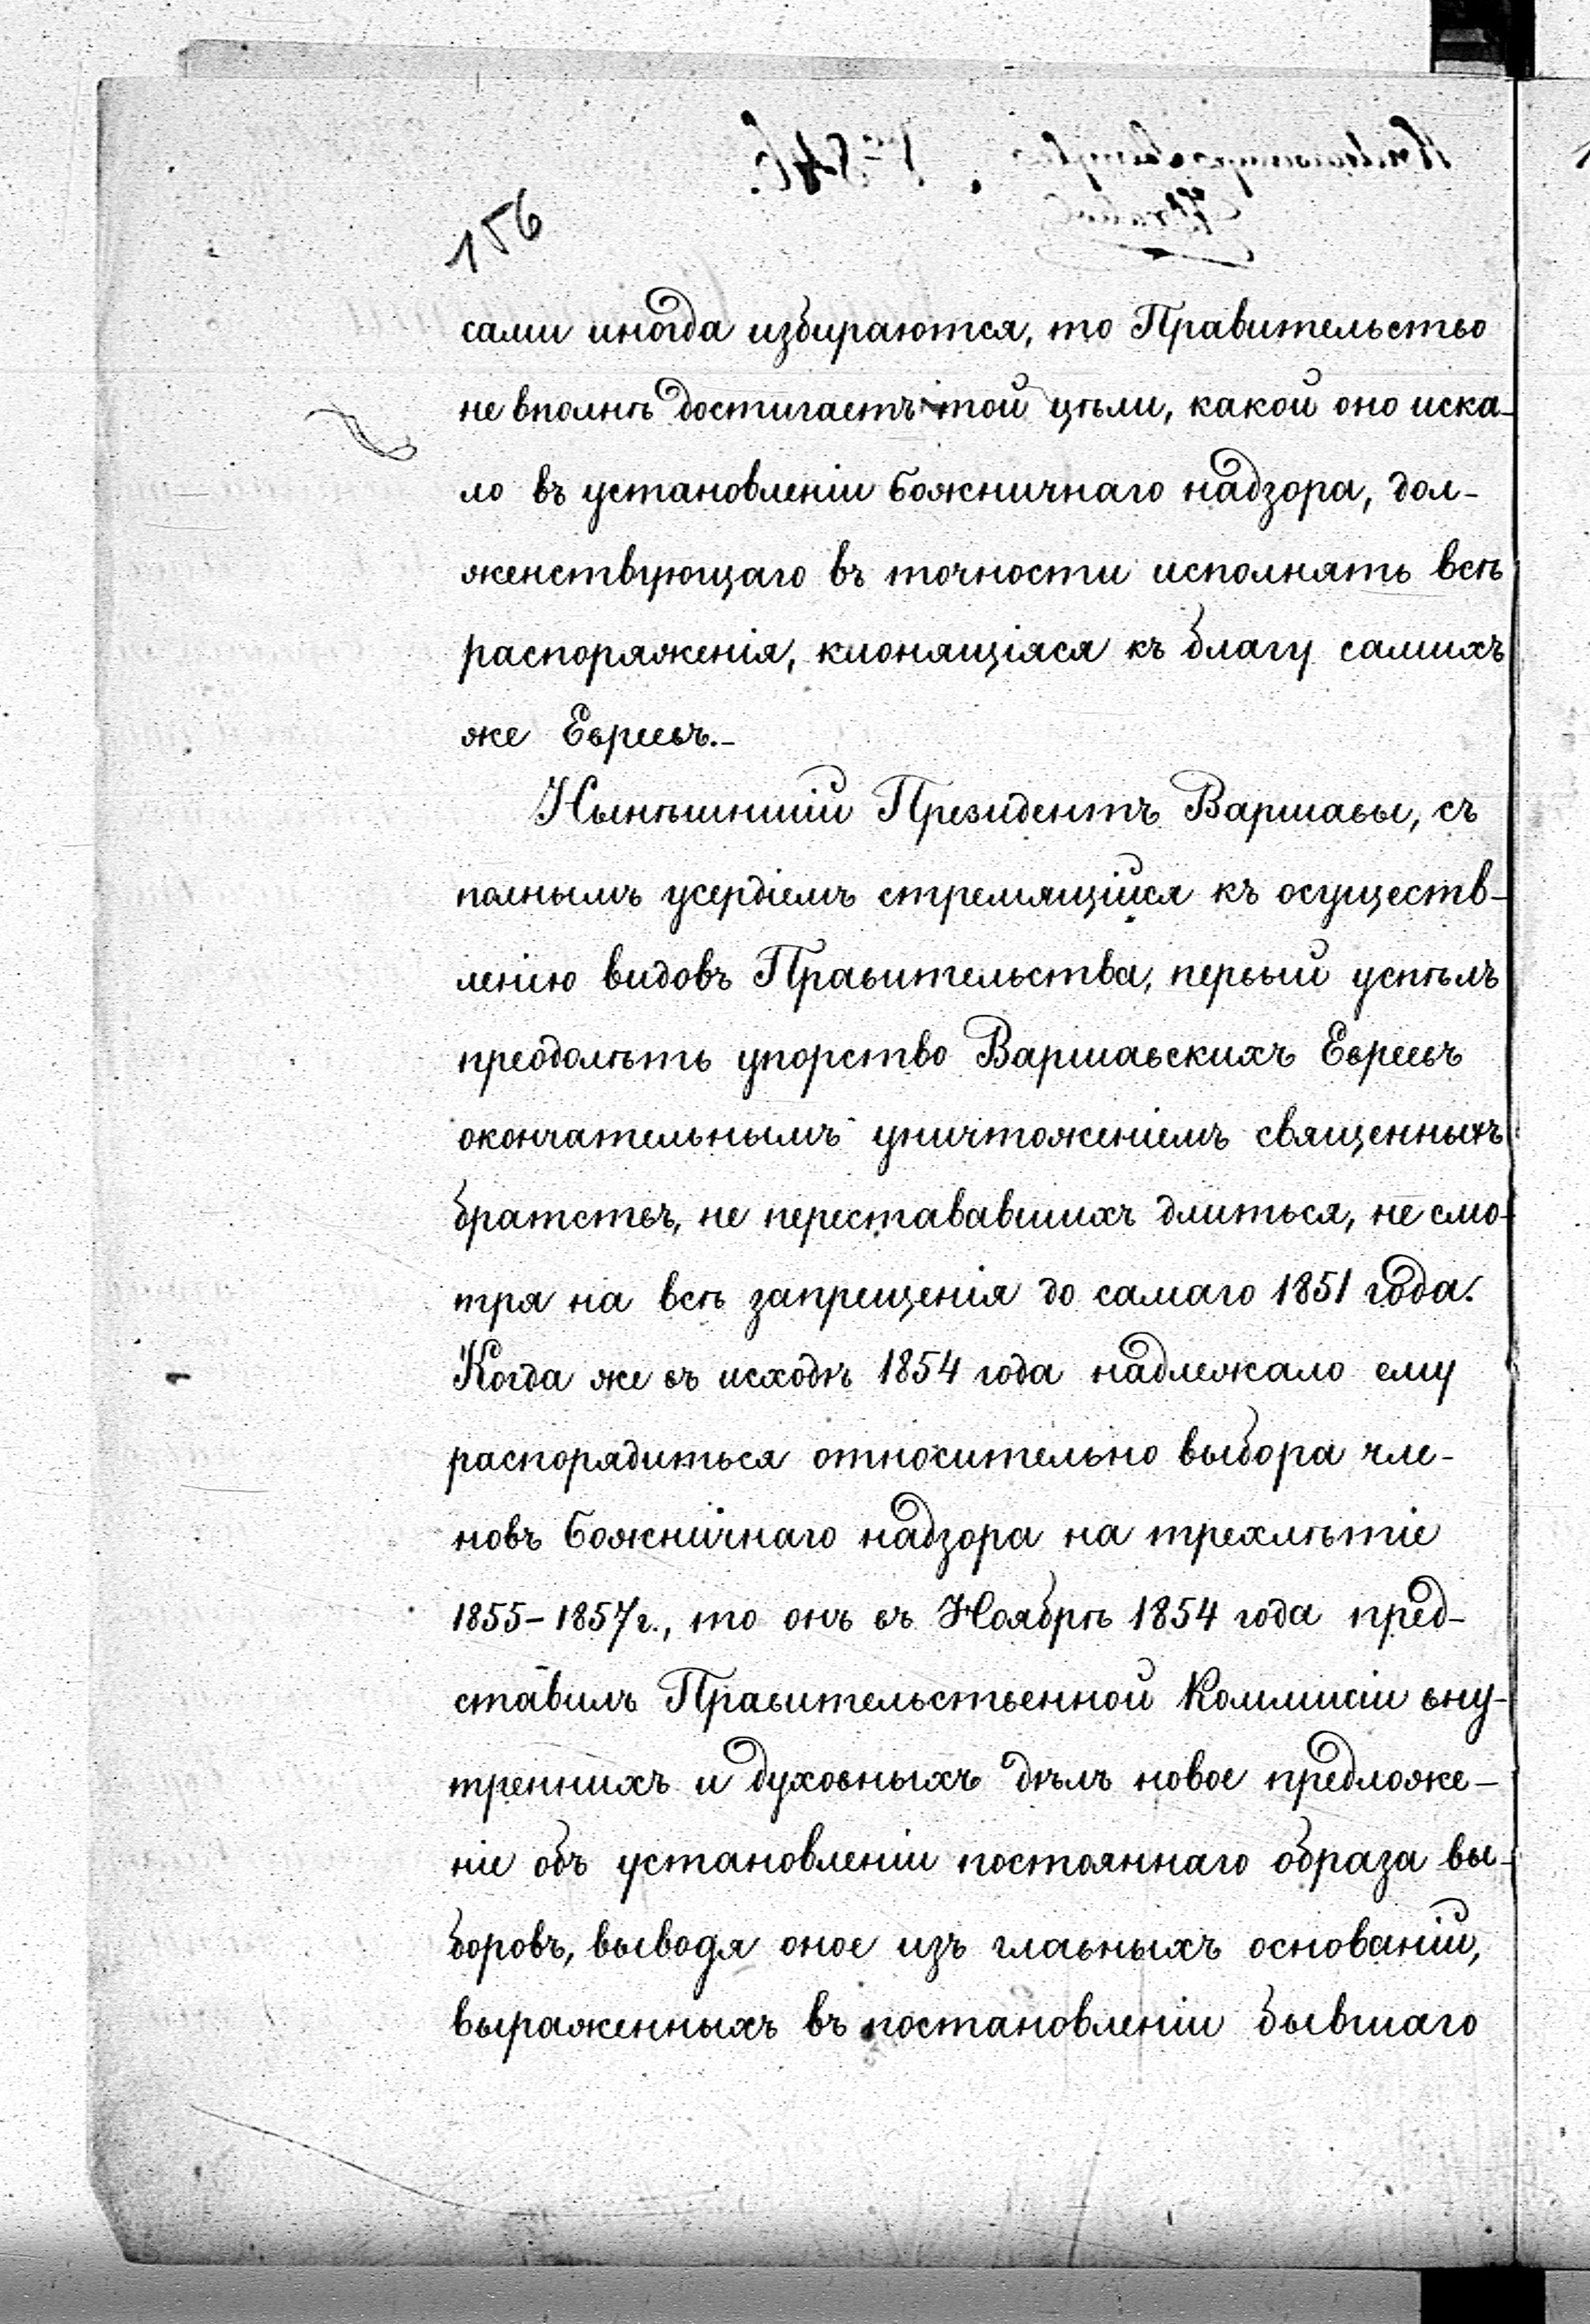 156
сами иногда избираются, то Правительство
не вполнѣ достигаетъ той цѣли, какой оно иска-
ло въ установленіи божничнаго надзора, дол-
женствующаго въ точности исполнять всѣ
распоряженія, клонящіяся къ благу самихъ
же Евреевъ.-
Нынѣшній Президентъ Варшавы, съ
полнымъ усердіемъ стремящійся къ осуществ-
ленію видовъ Правительства, первый успѣлъ
преодолѣть упорство Варшавскихъ Евреевъ
окончательнымъ уничтоженіемъ священныхъ
братствъ, не перестававшихъ длиться, не смо-
тря на всѣ запрещенія до самаго 1851 года.
Когда же въ исходѣ 1854 года надлежало ему
распорядиться относительно выбора чле-
новъ божничнаго надзора на трехлѣтіе
1855-1857 г., то онъ въ Ноябрѣ 1854 года пред-
ставилъ Правительственной Коммисіи вну-
треннихъ и духовныхъ дѣлъ новое предложе-
ніе объ установленіи постояннаго образа вы-
боровъ, выводя оное изъ главныхъ основаній,
выраженныхъ въ постановленіи бывшаго